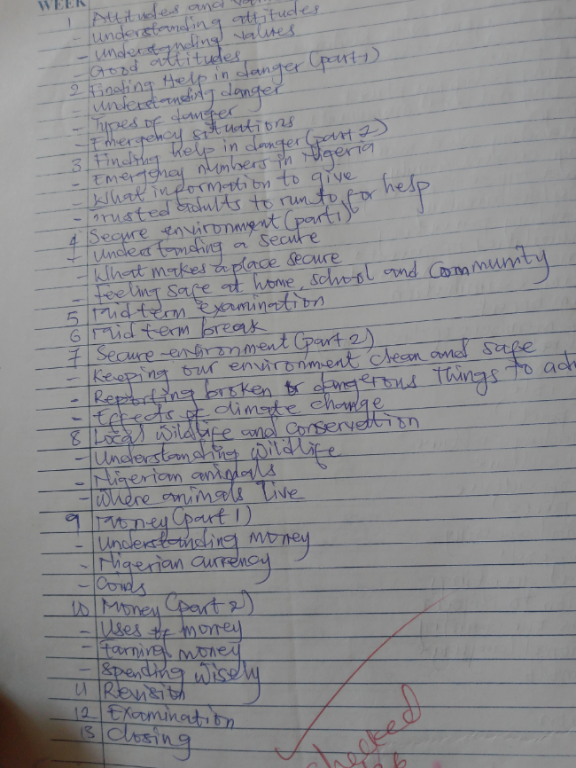 WEEK
1 Attitudes and
- Understanding attitudes
- Understanding values
- Good attitudes
2 Finding Help in danger (part 1)
- Understanding danger
- Types of danger
- Emergency situations
3 Finding help in danger (part 2)
- Emergency numbers in Nigeria
- What information to give
- Trusted adults to run to for help
4 Secure environment (part 1)
- Understanding a secure
- What makes a place secure
- Feeling safe at home, school and community
5 Mid term Examination
6 Mid term break
7 Secure environment (part 2)
- Keeping our environment clean and safe
- Reporting broken dangerous things to
- Effects of climate change
8 Local wildlife and conservation
- Understanding wildlife
- Nigerian animals
- Where animals live
9 Money (part 1)
- Understanding money
- Nigerian currency
-
10 Money (part 2)
- Uses of money
- Earning money
- Spending wisely
11 Revision
12 Examination
13 Closing
checked